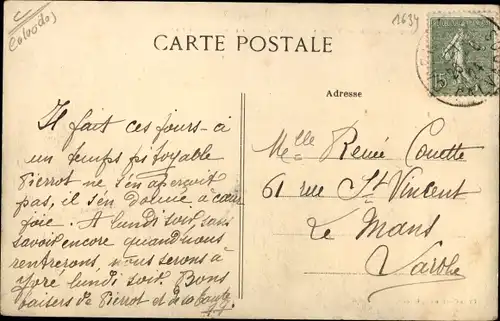 C
(Calvados)
1634
CARTE POSTALE
Adresse
15
CALVADOS
Il fait ces jours-ci
un temps pitoyable
Pierrot ne s'en aperçoit
pas, il s'en donne à cœur
joie. A lundi soir, sans
savoir encore quand nous
rentrerons, nous serons à
Yvré lundi soir. Bons
baisers de Pierrot et de sa
Melle Renée Couette
61 rue St Vincent
Le Mans
Sarthe